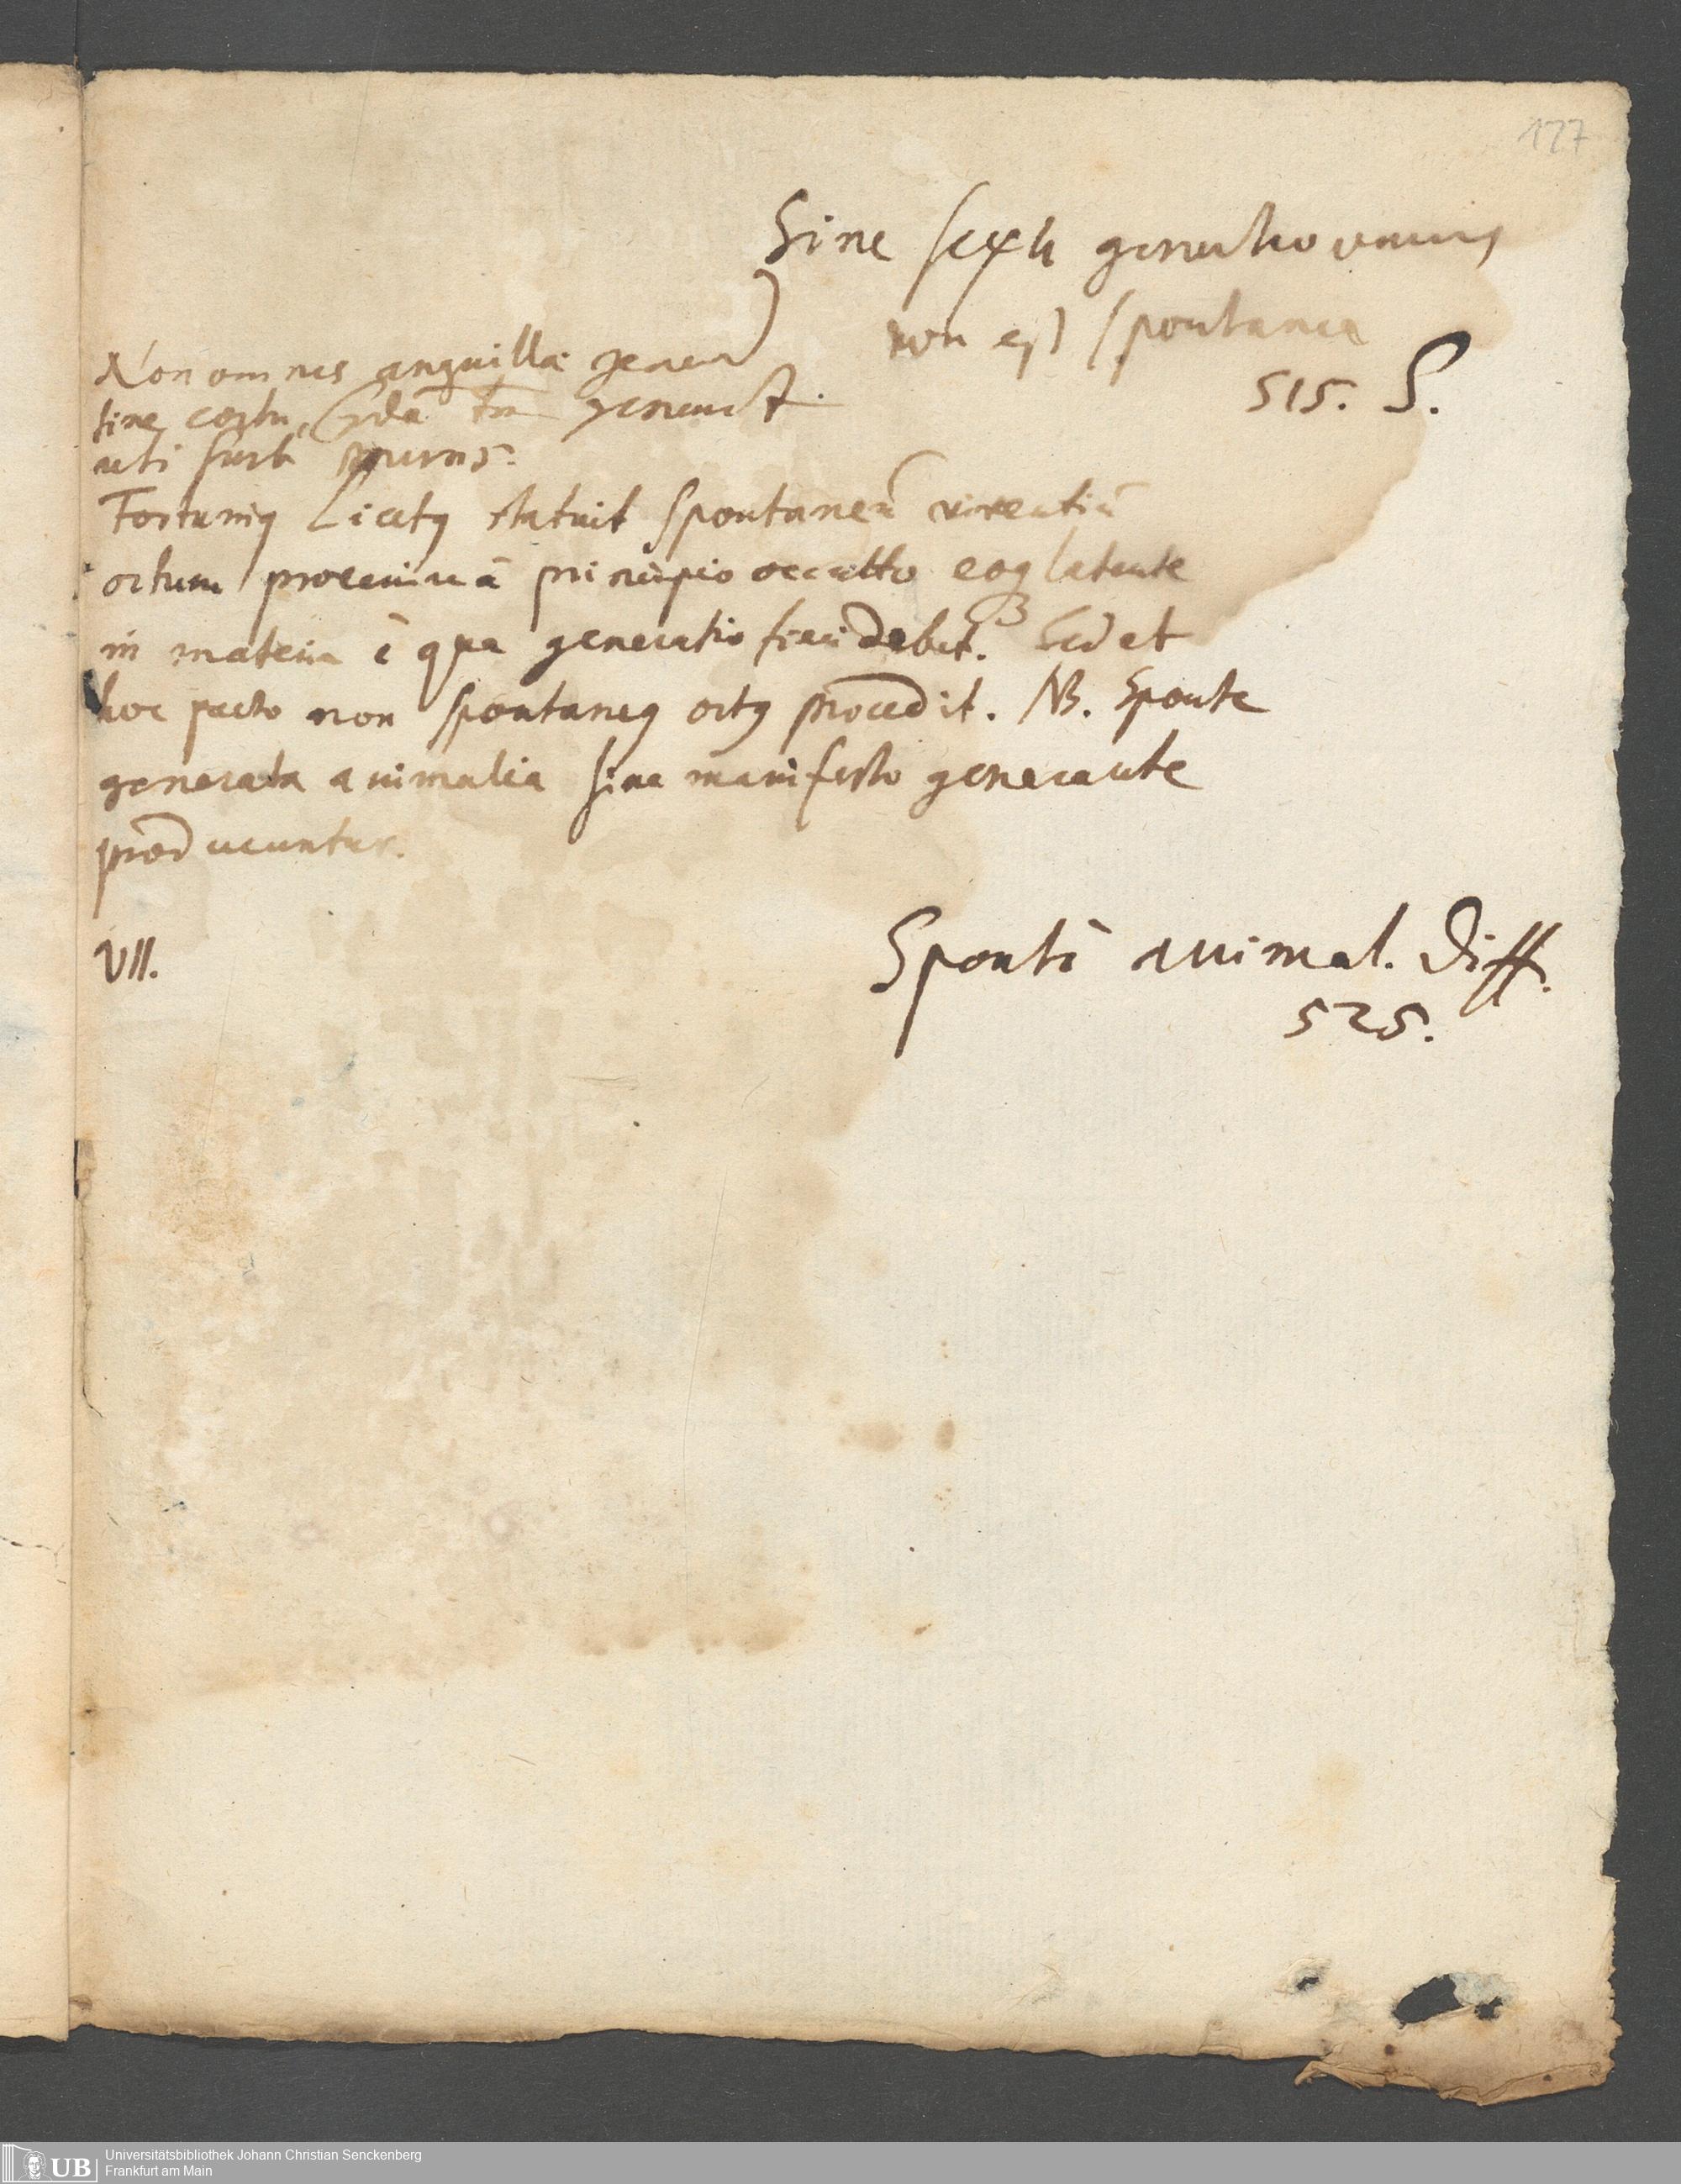 127
Sine sexu generatio omnis
non est spontanea
515. S.
Non omnes anguillæ gener
sine coitu, qdā tm̄ generāt.
uti sunt
Fortuniq Licetq statuit spontaneū viventiū
ortum provenire ā principio occulto eoq latente
in materia ē qua generatio fieri debet. Sed et
hoc pacto non spontaneq ortq procedit. NB. Sponte
generata animalia sine manifesto generante
producuntur.
VII.
Spontē animal. Diff.
525.
UB
Universitätsbibliothek Johann Christian Senckenberg
Frankfurt am Main